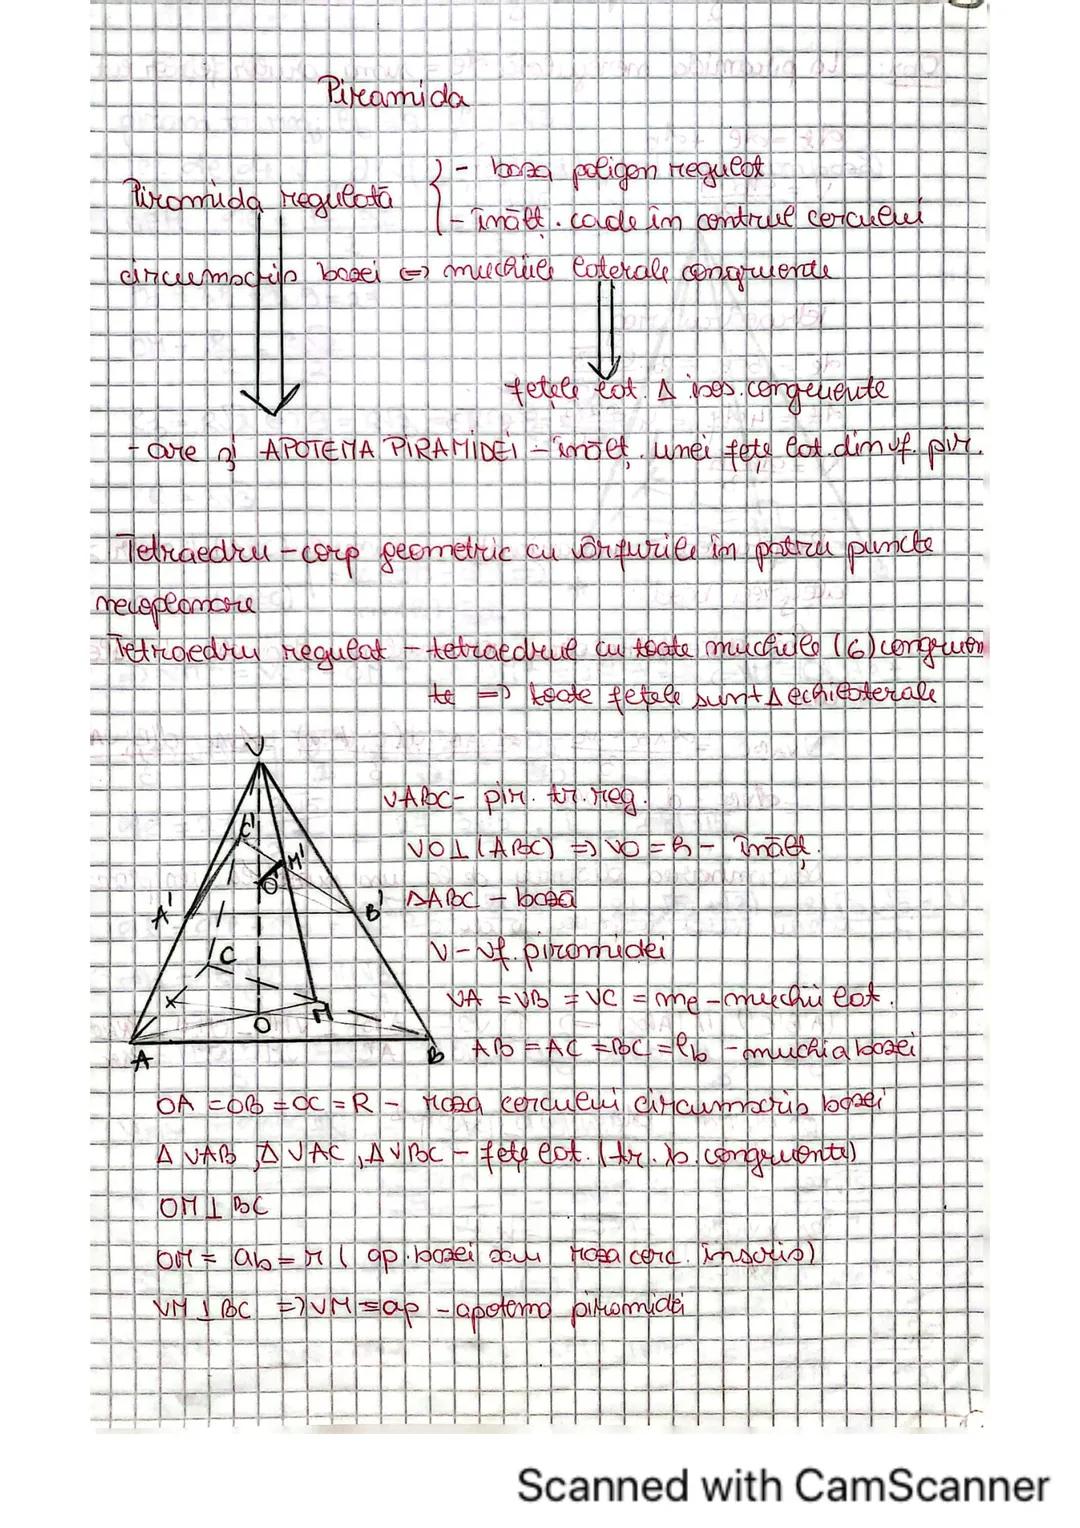 Piramida
Piramida regulată { - baza poligon regulat
- înălț. cade în centrul cercului
circumscris bazei ⇔ muchiile laterale congruente
fețele lat. Δ isos. congruente
- are și APOTEMA PIRAMIDEI - înălț. unei fețe lat. din vf. pir.
Tetraedru - corp geometric cu vârfurile în patru puncte
necoplanare
Tetraedru regulat - tetraedrul cu toate muchiile (6) congruen
te => toate fețele sunt Δ echilaterale
V
C'
M'
O'
A'
B'
C
M
O
A
B
VABC - pir. tr. reg.
VO⊥(ABC) => VO = h - înălț.
ΔABC - bază
V - vf. piramidei
VA = VB = VC = mℓ - muchii lat.
AB = AC = BC = ℓb - muchia bazei
OA = OB = OC = R - raza cercului circumscris bazei
Δ VAB, Δ VAC, Δ VBC - fețe lat. (tr. is. congruente)
OM ⊥ BC
OM = ab = r ( ap. bazei sau raza cerc. înscris)
VM ⊥ BC => VM = ap - apotema piramidei
Scanned with CamScanner